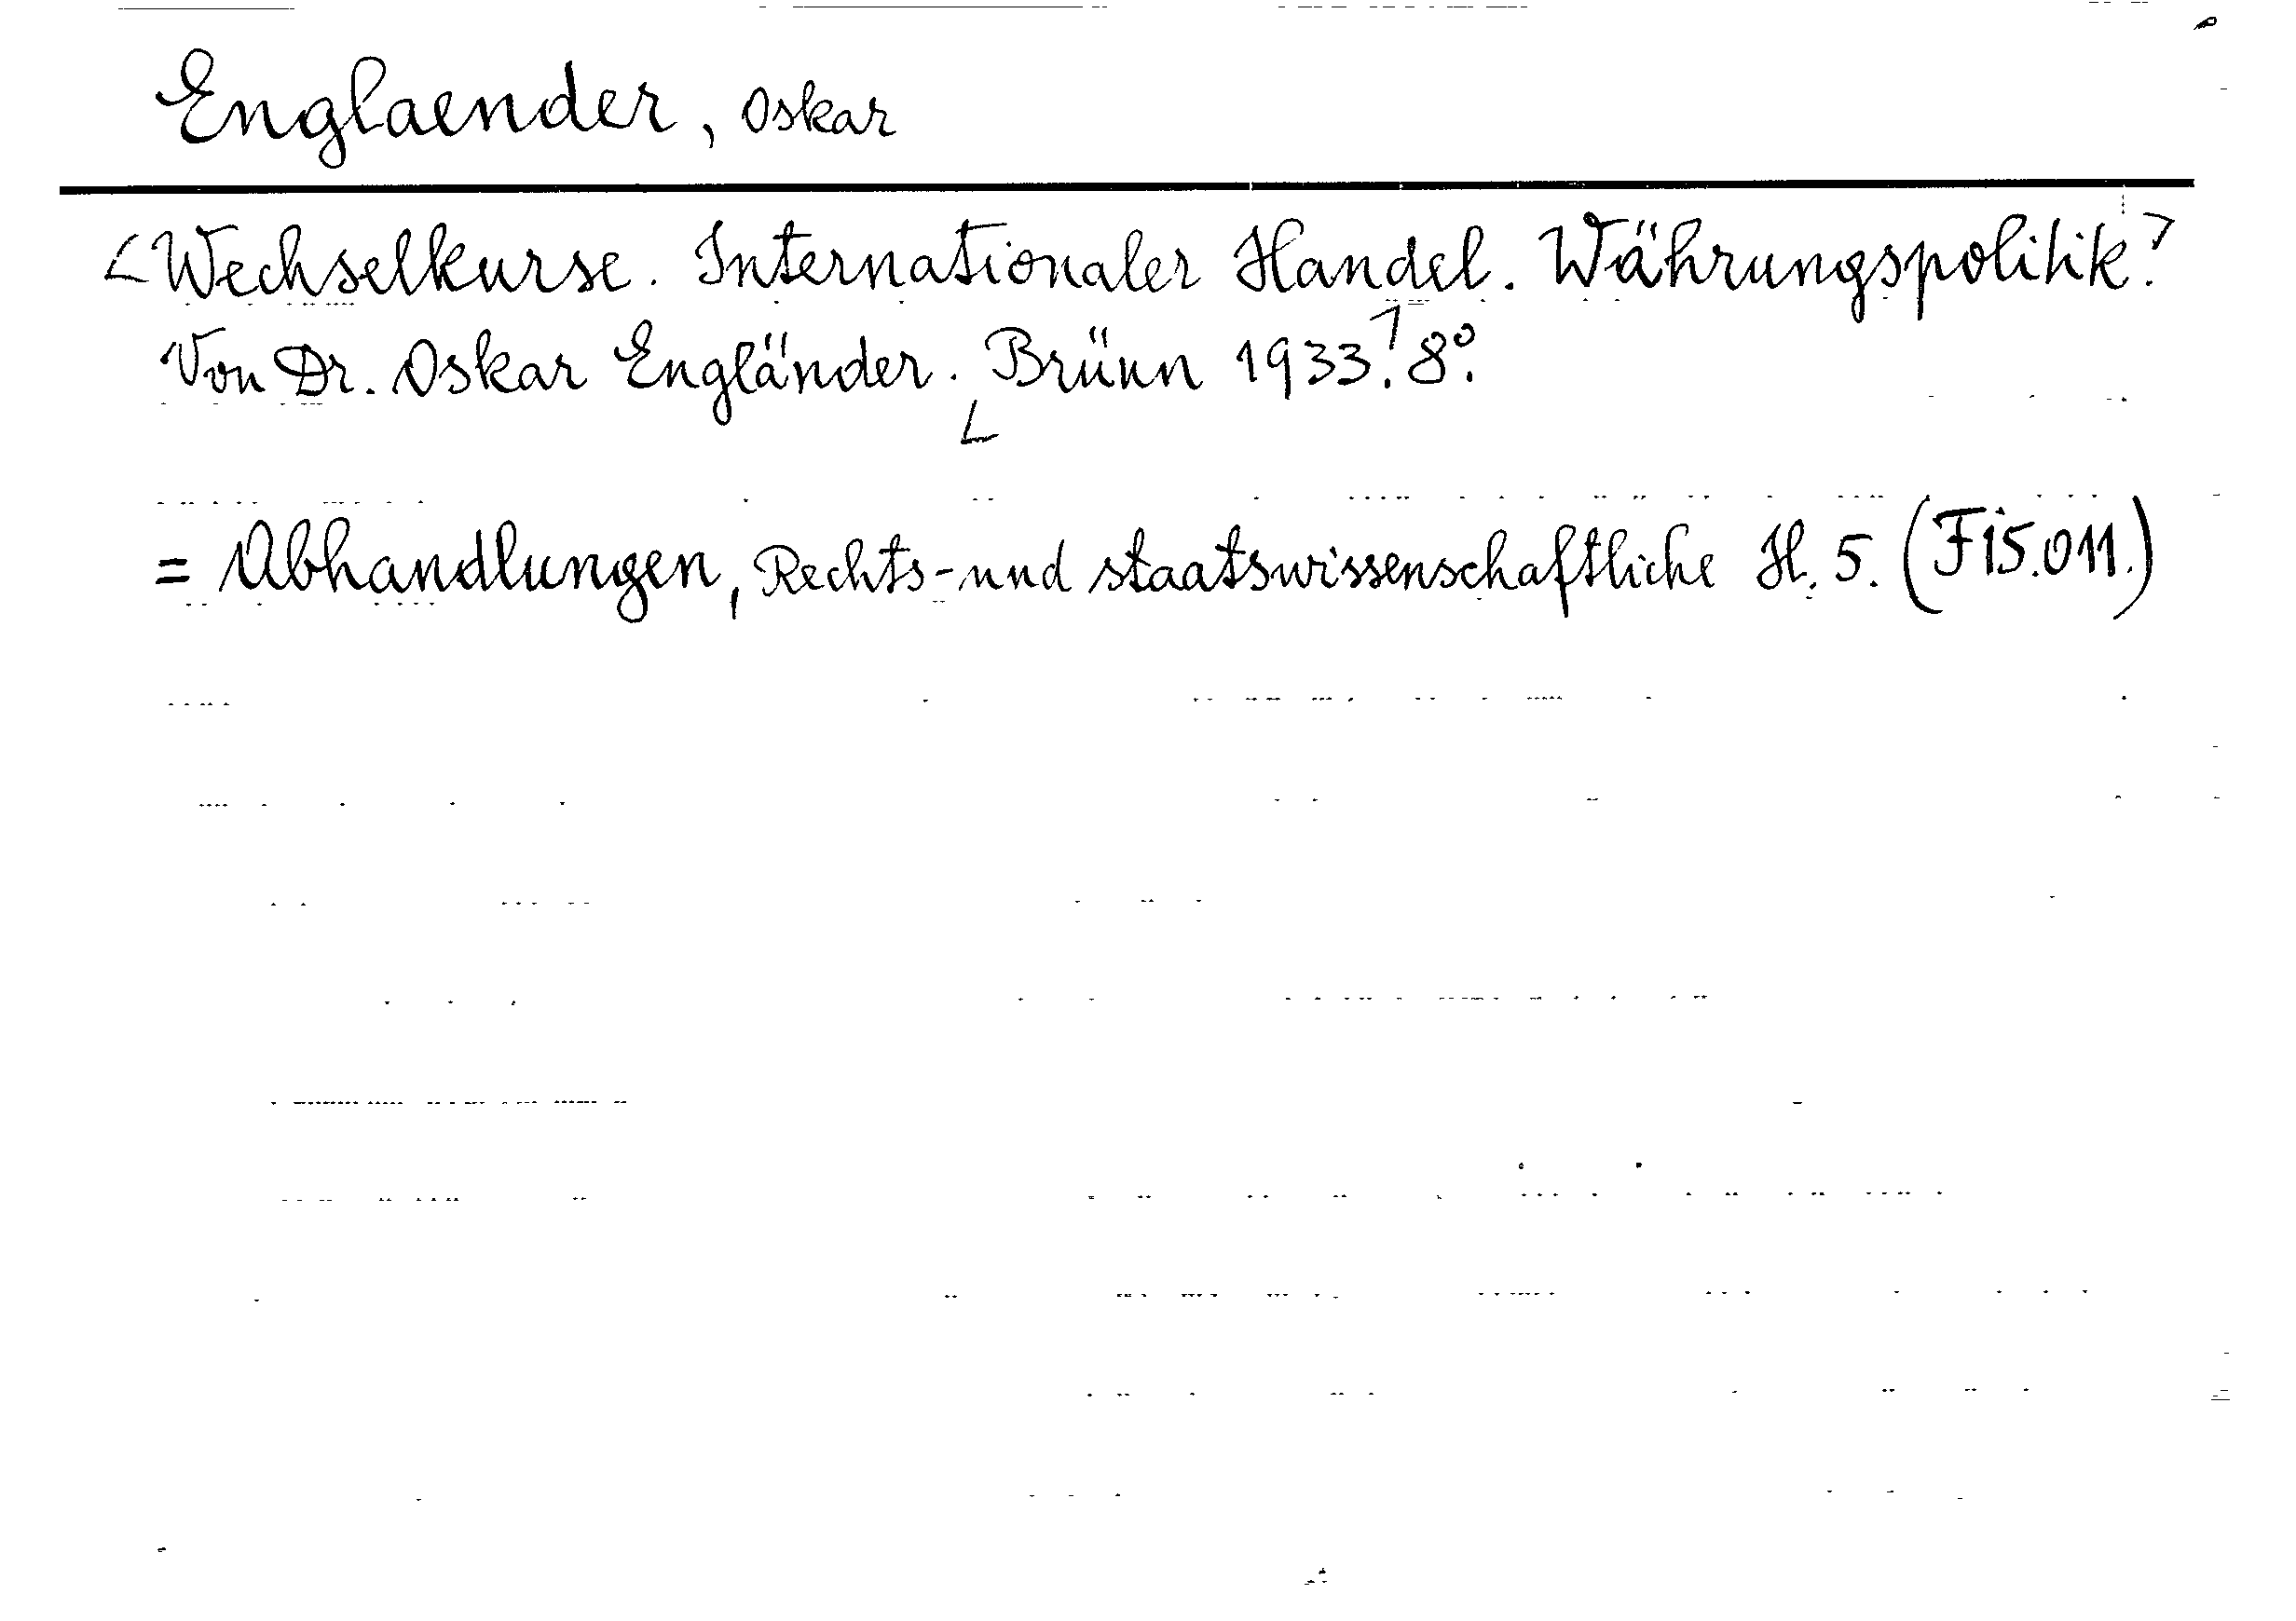 Englaender, Oskar
<Wechselkurse. Internationaler Handel. Währungspolitik.>
Von Dr. Oskar Engländer. <Brünn 1933.> 8°.
= Abhandlungen, Rechts- und staatswissenschaftliche H. 5. (F15.011.)